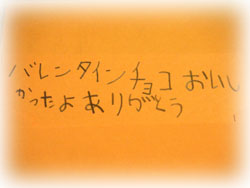 バレンタインチョコ おいし
かったよ ありがとう